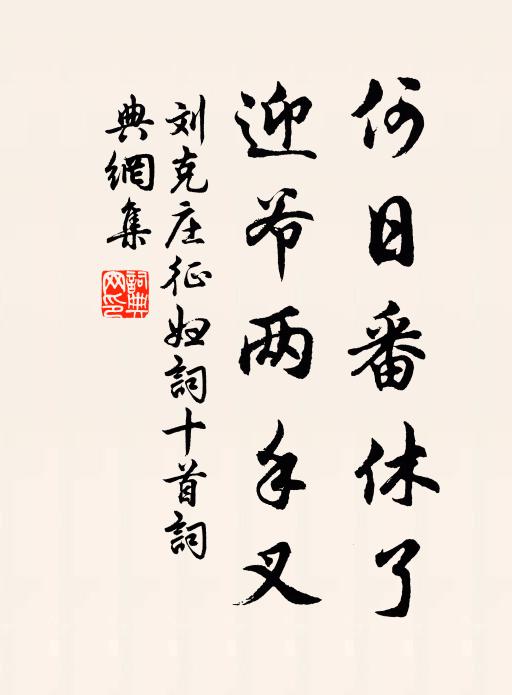 何日番休了
迎爷两手叉
刘克庄征妇詞十首詞
典網集
詞典
网印